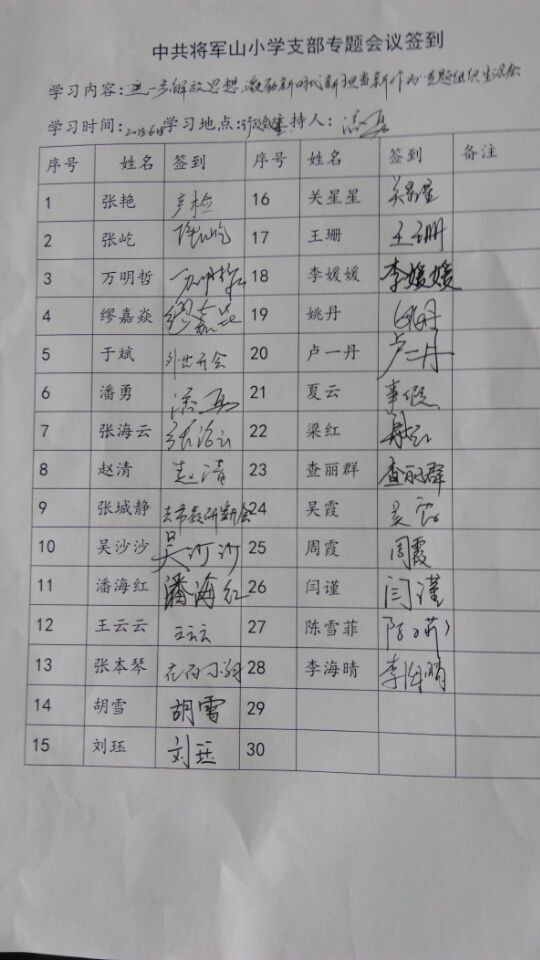 中共将军山小学支部专题会议签到
学习内容：进一步解放思想 激励新时代新担当新作为专题组织生活会
学习时间：学习地点：主持人：潘勇
序号 姓名 签到 序号 姓名 签到 备注
1 张艳 产检 16 关星星 关星星
2 张屹 张屹 17 王珊 王珊
3 万明哲 万明哲 18 李媛媛 李媛媛
4 缪嘉焱 缪嘉焱 19 姚丹 姚丹
5 于斌 外出开会 20 卢一丹 卢一丹
6 潘勇 潘勇 21 夏云 事假
7 张海云 张海云 22 梁红 梁红
8 赵清 赵清 23 查丽群 查丽群
9 张城静 去市教研室开会 24 吴霞 吴霞
10 吴沙沙 吴沙沙 25 周霞 周霞
11 潘海红 潘海红 26 闫谨 闫谨
12 王云云 王云云 27 陈雪菲
13 张本琴 28 李海晴 李海晴
14 胡雪 胡雪 29
15 刘珏 刘珏 30